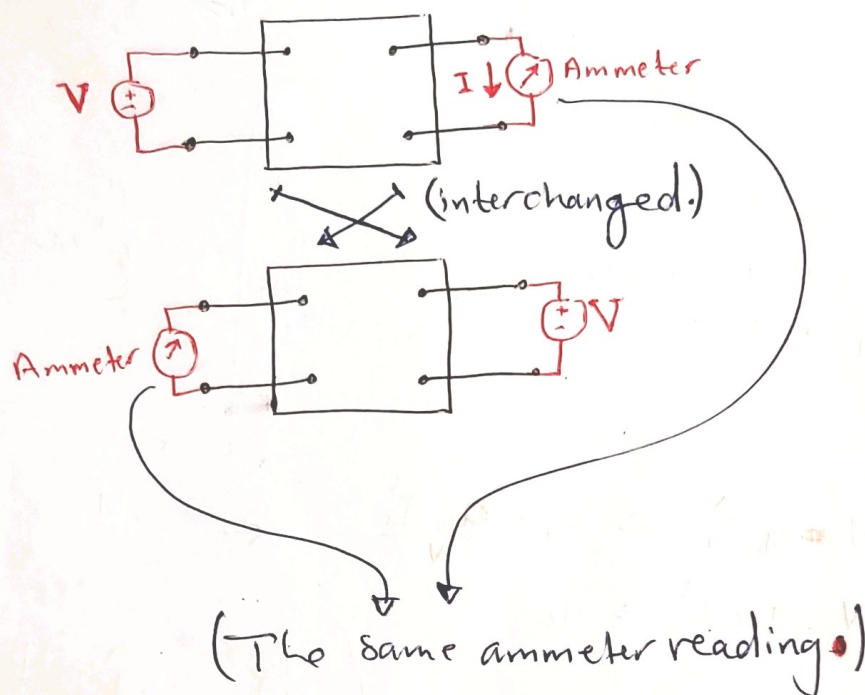 V
+
-
I
Ammeter
(interchanged.)
Ammeter
+
-
V
(The same ammeter reading.)